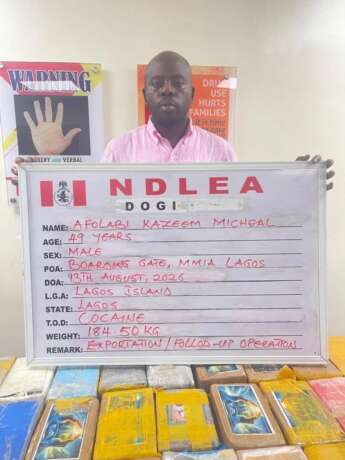 WARNING
BRIBERY AND VERBAL
DRUG
USE
HURTS
FAMILIES
NDLEA
DOGI
NAME: AFOLABI KAZEEM MICHEAL
AGE: 49 YEARS
SEX: MALE
POA: BOARDING GATE, MMIA LAGOS
DOA: 13TH AUGUST, 2026
L.G.A: LAGOS ISLAND
STATE: LAGOS
T.O.D: COCAINE
WEIGHT: 184.50 KG
REMARK: EXPORTATION/FOLLOD-UP OPERATION